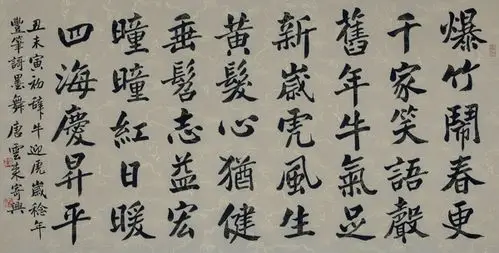 爆竹鬧春更
千家笑語聲
舊年牛氣足
新歲虎風生
黃髮心猶健
垂髫志益宏
曈曈紅日暖
四海慶昇平
丑末寅初辭牛迎虎歲稔年
豐筆謌墨舞唐雲來寄興